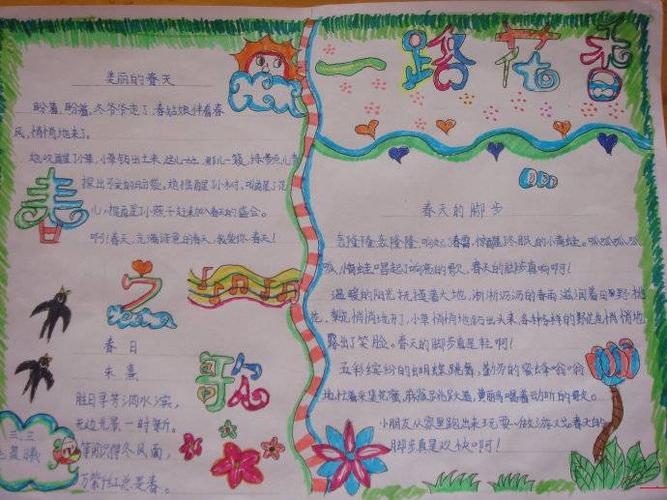 美丽的春天
盼着,盼着,冬爷爷走了,春姑娘伴着春
风,悄悄地来了。
她吹醒了小草,小草钻出土来,这儿一地,那儿一簇,
她摇醒了小树,
小燕子赶来加入春天的盛会。
啊!春天,充满诗意的春天,我爱你,春天!
春
之
歌
春日
朱熹
胜日寻芳泗水滨,
无边光景一时新。
等闲识得东风面,
万紫千红总是春。
三.三
一路花香
春天的脚步
轰隆隆,轰隆隆,响起了春雷,惊醒冬眠的小青蛙。呱呱呱,呱
呱,小青蛙唱起了响亮的歌,春天的脚步真响啊!
温暖的阳光抚摸着大地,淅淅沥沥的春雨滋润着田野,桃
花、梨花悄悄地开了,小草悄悄地钻出头来,各种各样的野花也悄悄地
露出了笑脸。春天的脚步真是轻啊!
五彩缤纷的蝴蝶跳舞,勤劳的蜜蜂嗡嗡
地忙着采集花蜜,黄鹂鸟唱着动听的歌儿。
小朋友从家里跑出来玩耍、做游戏。春天的
脚步真是欢快啊!